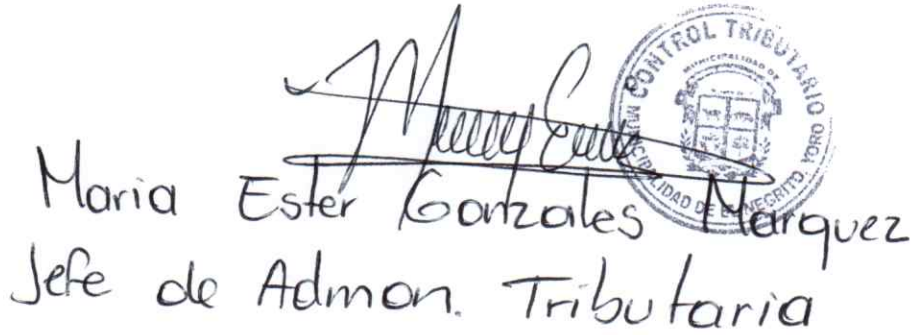 CONTROL TRIBUTARIO
MUNICIPALIDAD DE
MUNICIPALIDAD DE EL NEGRITO, YORO
Maria Ester Gonzales Marquez
Jefe de Admon. Tributaria